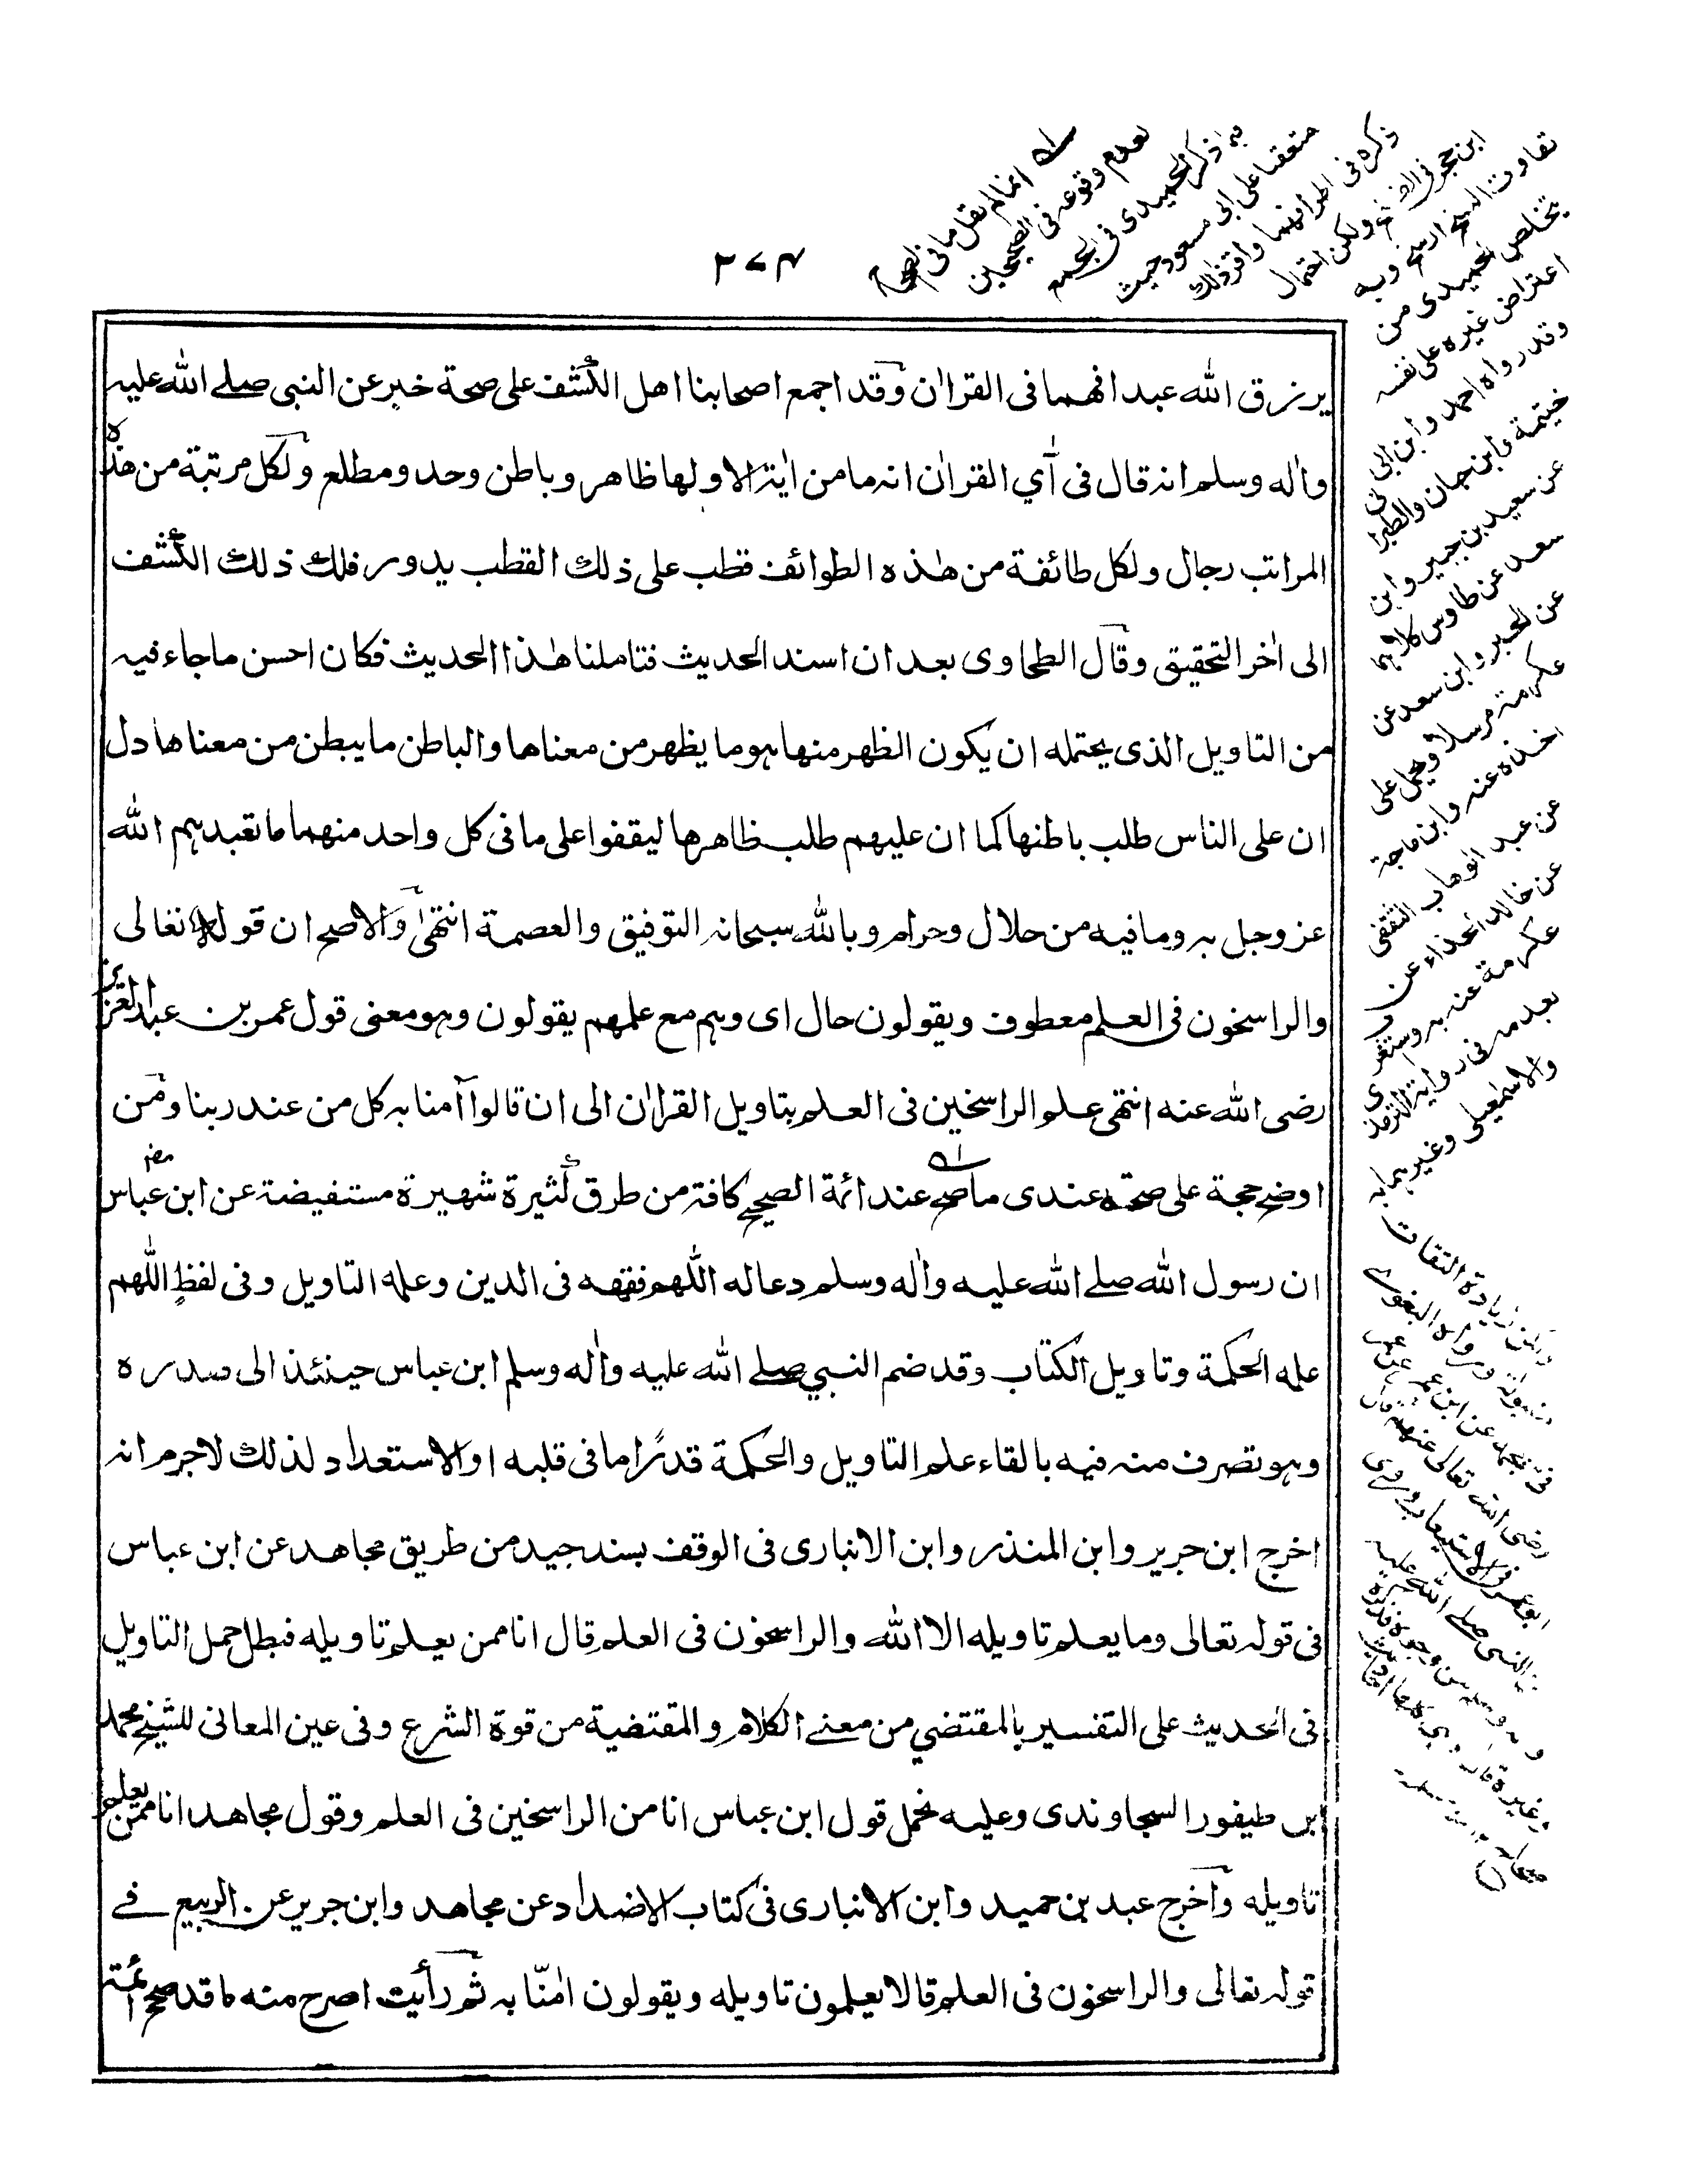 ٢٧٤
يرزق الله عبدا فهما فى القران وقد اجمع اصحابنا اهل الكشف على صحة خبر عن النبى صلے الله عليه
واٰله وسلم انه قال فى آي القران انه ما من اٰية الا ولها ظاهر وباطن وحد ومطلع ولكل مرتبة من هذه
المراتب رجال ولكل طائفة من هٰذه الطوائف قطب على ذلك القطب يدور فلك ذلك الكشف
الى اٰخر التحقيق وقال الطحاوى بعد ان اسند الحديث فتاملنا هٰذا الحديث فكان احسن ما جاء فيه
من التاويل الذى يحتمله ان يكون الظهر منها هو ما يظهر من معناها والباطن ما يبطن من معناها دل
ان على الناس طلب باطنها كما ان عليهم طلب ظاهرها ليقفوا على ما فى كل واحد منهما ما تعبدهم الله
عز وجل به وما فيه من حلال وحرام وبالله سبحانه التوفيق والعصمة انتهىٰ والاصح ان قوله تعالى
والراسخون فى العلم معطوف ويقولون حال اى وهم مع علمهم يقولون وهو معنى قول عمر بن عبد العزيز
رضى الله عنه انتهى علم الراسخين فى العلم بتاويل القراٰن الى ان قالوا آمنا به كل من عند ربنا ومن
اوضح حجة على صحته عندى ما صح عند ائمة الصحيح كافة من طرق كثيرة شهيرة مستفيضة عن ابن عباس
ان رسول الله صلے الله عليه واٰله وسلم دعا له اللّٰهم فقهه فى الدين وعلمه التاويل وفى لفظٍ اللّٰهم
علمه الحكمة وتاويل الكتاب وقد ضم النبي صلے الله عليه واٰله وسلم ابن عباس حينئذ الى صدره
وهو تصرف منه فيه بالقاء علم التاويل والحكمة قدرًا ما فى قلبه او الاستعداد لذلك لا جرم انه
اخرج ابن جرير وابن المنذر وابن الانبارى فى الوقف بسند جيد من طريق مجاهد عن ابن عباس
فى قوله تعالى وما يعلم تاويله الا الله والراسخون فى العلم قال انا ممن يعلم تاويله فبطل حمل التاويل
فى الحديث على التفسير بالمقتضي من معنے الكلام والمقتضية من قوة الشرع وفى عين المعانى للشيخ محمد
ابن طيفور السجاوندى وعليه نحمل قول ابن عباس انا من الراسخين فى العلم وقول مجاهد انا ممن يعلم
تاويله واخرج عبد بن حميد وابن الانبارى فى كتاب الاضداد عن مجاهد وابن جرير عن الربيع فے
قوله تعالى والراسخون فى العلم قالا يعلمون تاويله ويقولون اٰمنّا به ثم رأيت اصرح منه ما قد صححه ائمة
انما لم نقل ما فى الصحاح
لعدم وقوعه فى الصحيحين
بما ذكر الحميدى فى الجمع
متعقبا على ابى مسعود حيث
ذكره فى اطرافهما واقر ذلك
ابن حجر فى الفتح ولكن احتمال
تفاوت النسخ ارسخ وبه
يتخلص الحميدى من
اعتراض غيره على نفسه
وقد رواه احمد وابن ابى
خيثمة وابن حبان والطبرانى
عن سعيد بن جبير وابن
سعد عن طاوس كلاهما
عن الحبر وابن سعد عن
عكرمة مرسلا ويحمل على
اخذه عنه وابن ماجة
عن عبد الوهاب الثقفى
عن خالد الحذاء عن
عكرمة عنه به
بعدمه فى رواية الترمذى
والاسمعيلى وغيرهما به
زيادة الثقات
رواه البغوے
عن ابن عمر
رضى الله تعالى عنهما
ابو عمر فى الاستيعاب
النبى صلے الله عليه